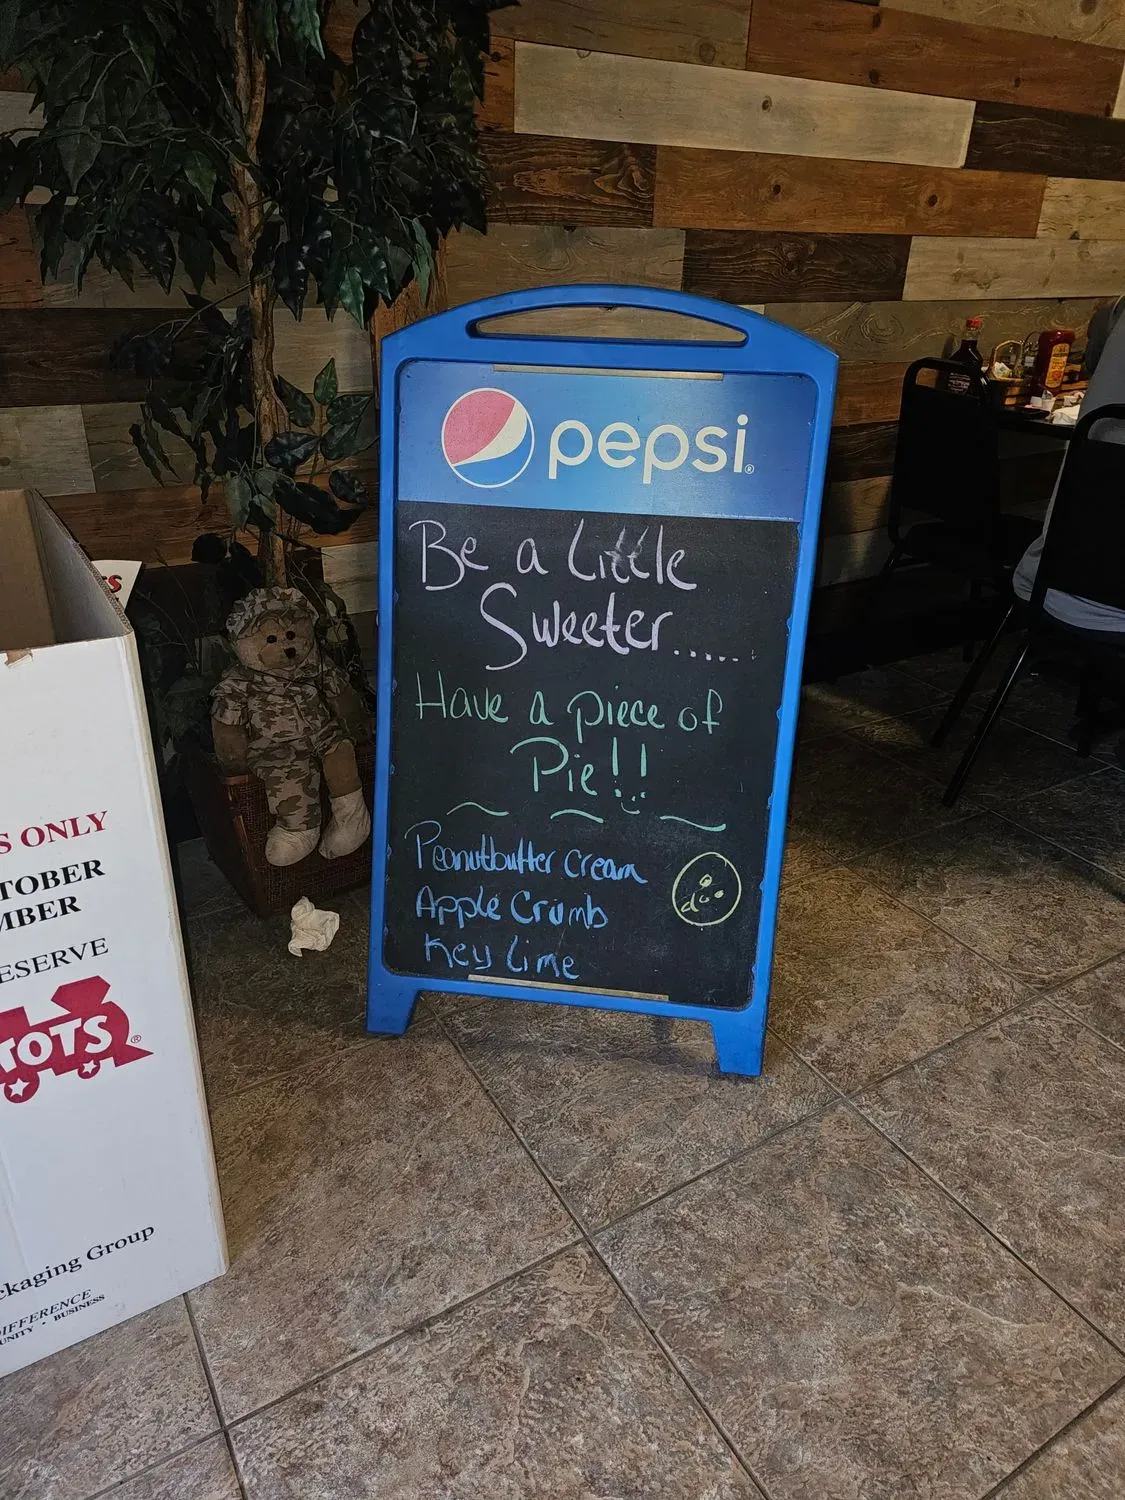 pepsi®
Be a Little
Sweeter......
Have a piece of
Pie!!
Peanutbutter Cream
Apple Crumb
Key Lime
S ONLY
TOBER
MBER
ESERVE
TOTS®
ckaging Group
DIFFERENCE
UNITY • BUSINESS